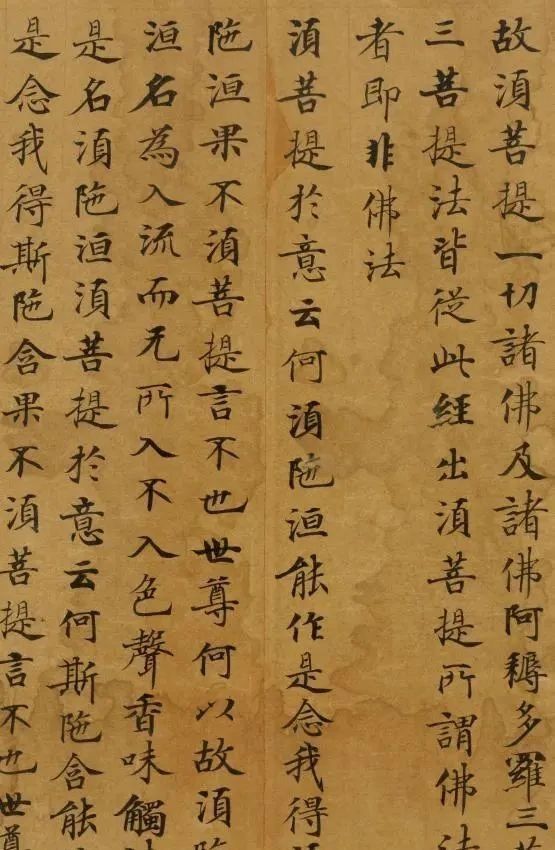 故須菩提一切諸佛及諸佛阿耨多羅三
三菩提法皆從此經出須菩提所謂佛法
者即非佛法
須菩提於意云何須陁洹能作是念我得
陁洹果不須菩提言不也世尊何以故須
洹名為入流而无所入不入色聲香味觸
是名須陁洹須菩提於意云何斯陁含能
是念我得斯陁含果不須菩提言不也世尊